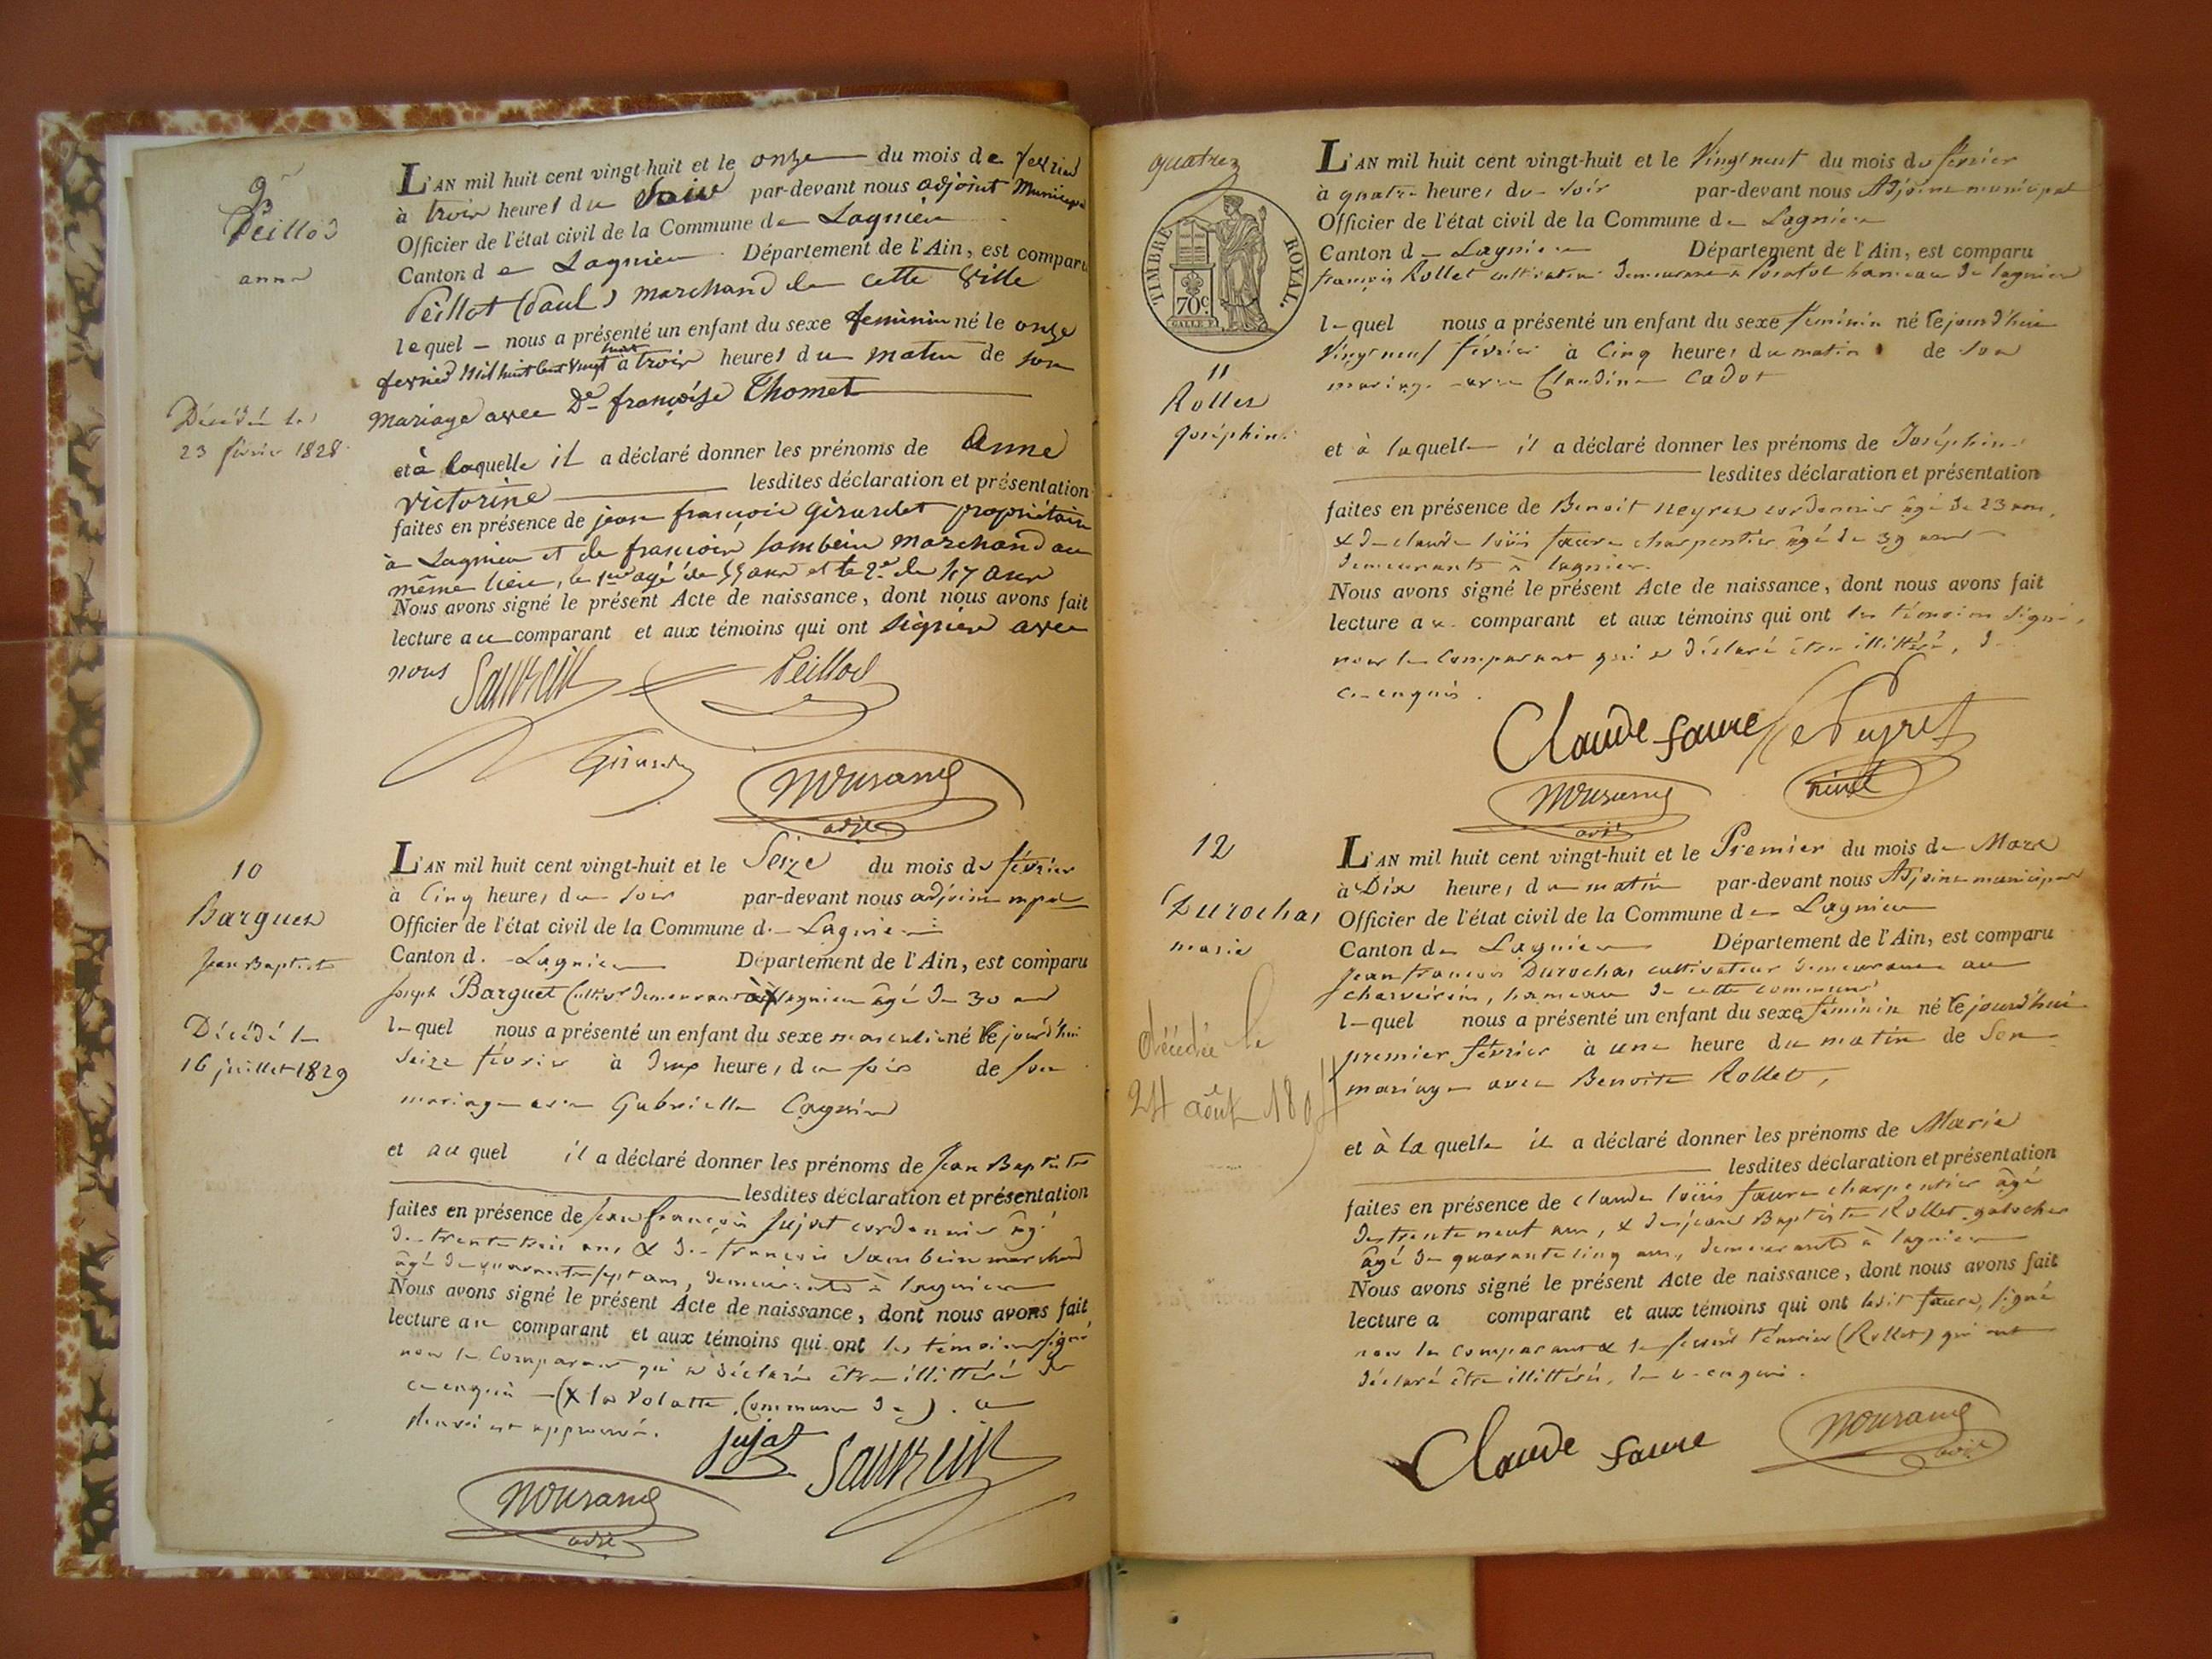 9
Peillod
anne
Décédée le
23 février 1828
L'AN mil huit cent vingt-huit et le onze du mois de fevrier
à trois heures du Soir par-devant nous adjoint Municipal
Officier de l'état civil de la Commune de Lagnieu
Canton de Lagnieu Département de l'Ain, est comparu
Peillot (Paul) marchand de cette Ville
lequel nous a présenté un enfant du sexe feminin né le onze
fevrier Mil huit Cent Vingt huit à trois heures du matin de son
Mariage avec De françoise Thomet
et à laquelle il a déclaré donner les prénoms de Anne
victorine lesdites déclaration et présentation
faites en présence de jean françois Girardet propriétaire
à Lagnieu et de françois Sambein Marchand au
même lieu, le 1er agé de 55 ans et le 2e de 47 ans
Nous avons signé le présent Acte de naissance, dont nous avons fait
lecture au comparant et aux témoins qui ont signés avec
nous
Peillod
10
Barguet
Jean Baptiste
Décédé le
16 juillet 1829
L'AN mil huit cent vingt-huit et le Seize du mois de février
à Cinq heures du soir par-devant nous adjoint mpal
Officier de l'état civil de la Commune de Lagnieu
Canton de Lagnieu Département de l'Ain, est comparu
Joseph Barguet Cultivr demeurant à X Lagnieu âgé de 30 ans
lequel nous a présenté un enfant du sexe masculin né le jourd'hui
seize février à deux heures du soir de son
mariage avec Gabrielle Cagnin
et au quel il a déclaré donner les prénoms de Jean Baptiste
lesdites déclaration et présentation
faites en présence de Jean françois Jujat cordonnier âgé
de trente trois ans & de françois Sambein marchand
âgé de quarante sept ans, demeurants à Lagnieu
Nous avons signé le présent Acte de naissance, dont nous avons fait
lecture au comparant et aux témoins qui ont les témoins signé
non le Comparant qui a déclaré être illittéré de
ce enquis (X la Volatte, Commune de). ce
renvoi est approuvé.
Jujat
quatre
TIMBRE ROYAL
70c
11
Rollet
Joséphine
L'AN mil huit cent vingt-huit et le Vingt neuf du mois de février
à quatre heures du soir par-devant nous Adjoint municipal
Officier de l'état civil de la Commune de Lagnieu
Canton de Lagnieu Département de l'Ain, est comparu
françois Rollet cultivateur demeurant à hameau de lagnieu
lequel nous a présenté un enfant du sexe féminin né le jourd'hui
Vingt neuf février à Cinq heures du matin de son
mariage avec Claudine Cadot
et à laquelle il a déclaré donner les prénoms de Joséphine
lesdites déclaration et présentation
faites en présence de Benoit neyret cordonnier âgé de 23 ans,
& de claude loüis faure charpentier âgé de 39 ans
demeurants à lagnieu.
Nous avons signé le présent Acte de naissance, dont nous avons fait
lecture au comparant et aux témoins qui ont les témoins signé,
non le Comparant qui a déclaré être illittéré, de
ce enquis.
Claude faure
12
Durochas
marie
décédée le
24 août
L'AN mil huit cent vingt-huit et le Premier du mois de Mars
à Dix heures du matin par-devant nous Adjoint municipal
Officier de l'état civil de la Commune de Lagnieu
Canton de Lagnieu Département de l'Ain, est comparu
Jean françois Durochas cultivateur demeurant au
charveirin, hameau de cette commune
lequel nous a présenté un enfant du sexe féminin né le jourd'hui
premier février à une heure du matin de Son
mariage avec Benoite Rollet,
et à la quelle il a déclaré donner les prénoms de Marie
lesdites déclaration et présentation
faites en présence de claude loüis faure charpentier âgé
de trente neuf ans, & de jean Baptiste Rollet galocher
âgé de quarante cinq ans, demeurants à lagnieu
Nous avons signé le présent Acte de naissance, dont nous avons fait
lecture a comparant et aux témoins qui ont ledit faure, signé
non les comparant & le second témoin (Rollet) qui ont
déclaré être illittérés, de ce enquis.
Claude faure